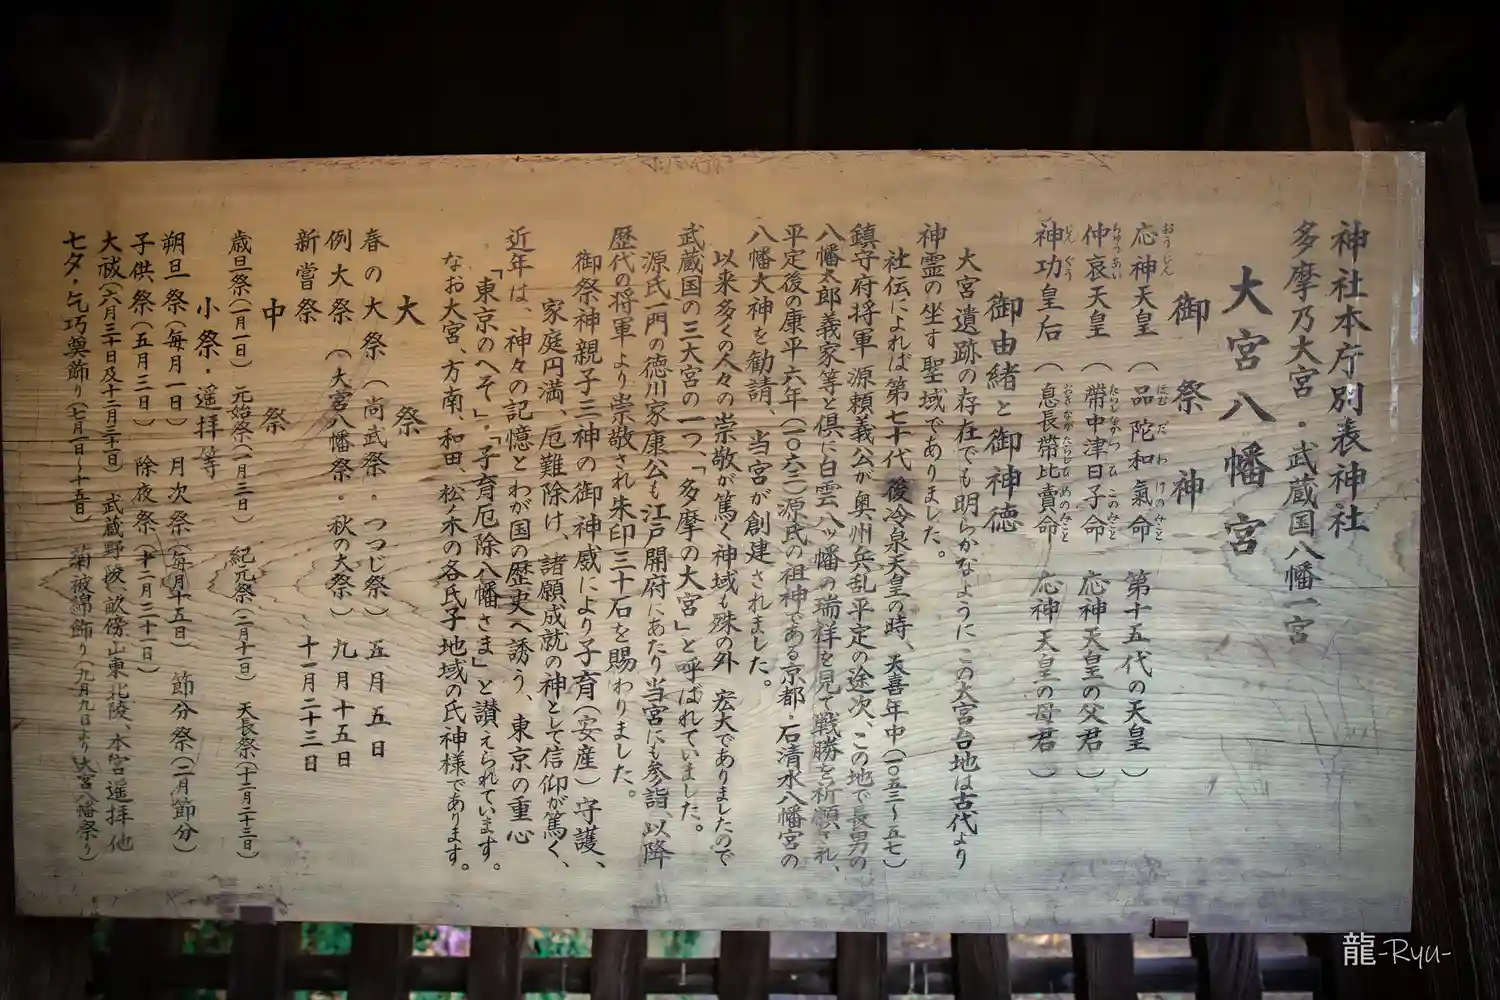 神社本庁別表神社
多摩乃大宮・武蔵国八幡一宮
大宮八幡宮
御祭神
応神天皇（品陀和氣命　第十五代の天皇）
おうじん　ほむだわけのみこと
仲哀天皇（帶中津日子命　応神天皇の父君）
ちゅうあい　たらしなかつひこのみこと
神功皇后（息長帶比賣命　応神天皇の母君）
じんぐう　おきながたらしひめのみこと
御由緒と御神徳
大宮遺跡の存在でも明らかなように この大宮台地は古代より
神霊の坐す聖域でありました。
社伝によれば第七十代後冷泉天皇の時、天喜年中（一〇五三〜五七）
鎮守府将軍源頼義公が奥州兵乱平定の途次、この地で長男の
八幡太郎義家等と倶に白雲八ッ幡の瑞祥を見て戦勝を祈願され、
平定後の康平六年（一〇六三）源氏の祖神である京都・石清水八幡宮の
八幡大神を勧請、当宮が創建されました。
以来多くの人々の崇敬が篤く神域も殊の外 宏大でありましたので
武蔵国の三大宮の一つ、「多摩の大宮」と呼ばれていました。
源氏一門の徳川家康公も江戸開府にあたり当宮にも参詣、以降
歴代の将軍より崇敬され朱印三十石を賜わりました。
御祭神親子三神の御神威により子育（安産）守護、
家庭円満、厄難除け、諸願成就の神として信仰が篤く、
近年は、神々の記憶とわが国の歴史へ誘う、東京の重心
「東京のへそ」・「子育厄除八幡さま」と讃えられています。
なお大宮、方南、和田、松ノ木の各氏子地域の氏神様であります。
大祭
春の大祭（尚武祭・つつじ祭）五月五日
例大祭（大宮八幡祭・秋の大祭）九月十五日
新嘗祭　十一月二十三日
中祭
歳旦祭（一月一日）元始祭（一月三日）紀元祭（二月十一日）天長祭（十二月二十三日）
小祭・遥拝等
朔旦祭（毎月一日）月次祭（毎月十五日）節分祭（二月節分）
子供祭（五月三日）除夜祭（十二月三十一日）
大祓（六月三十日及十二月三十一日）武蔵野陵、畝傍山東北陵、本宮遥拝 他
七夕・乞巧奠飾り（七月一日〜十五日）菊被綿飾り（九月九日より大宮八幡祭り）
龍-Ryu-